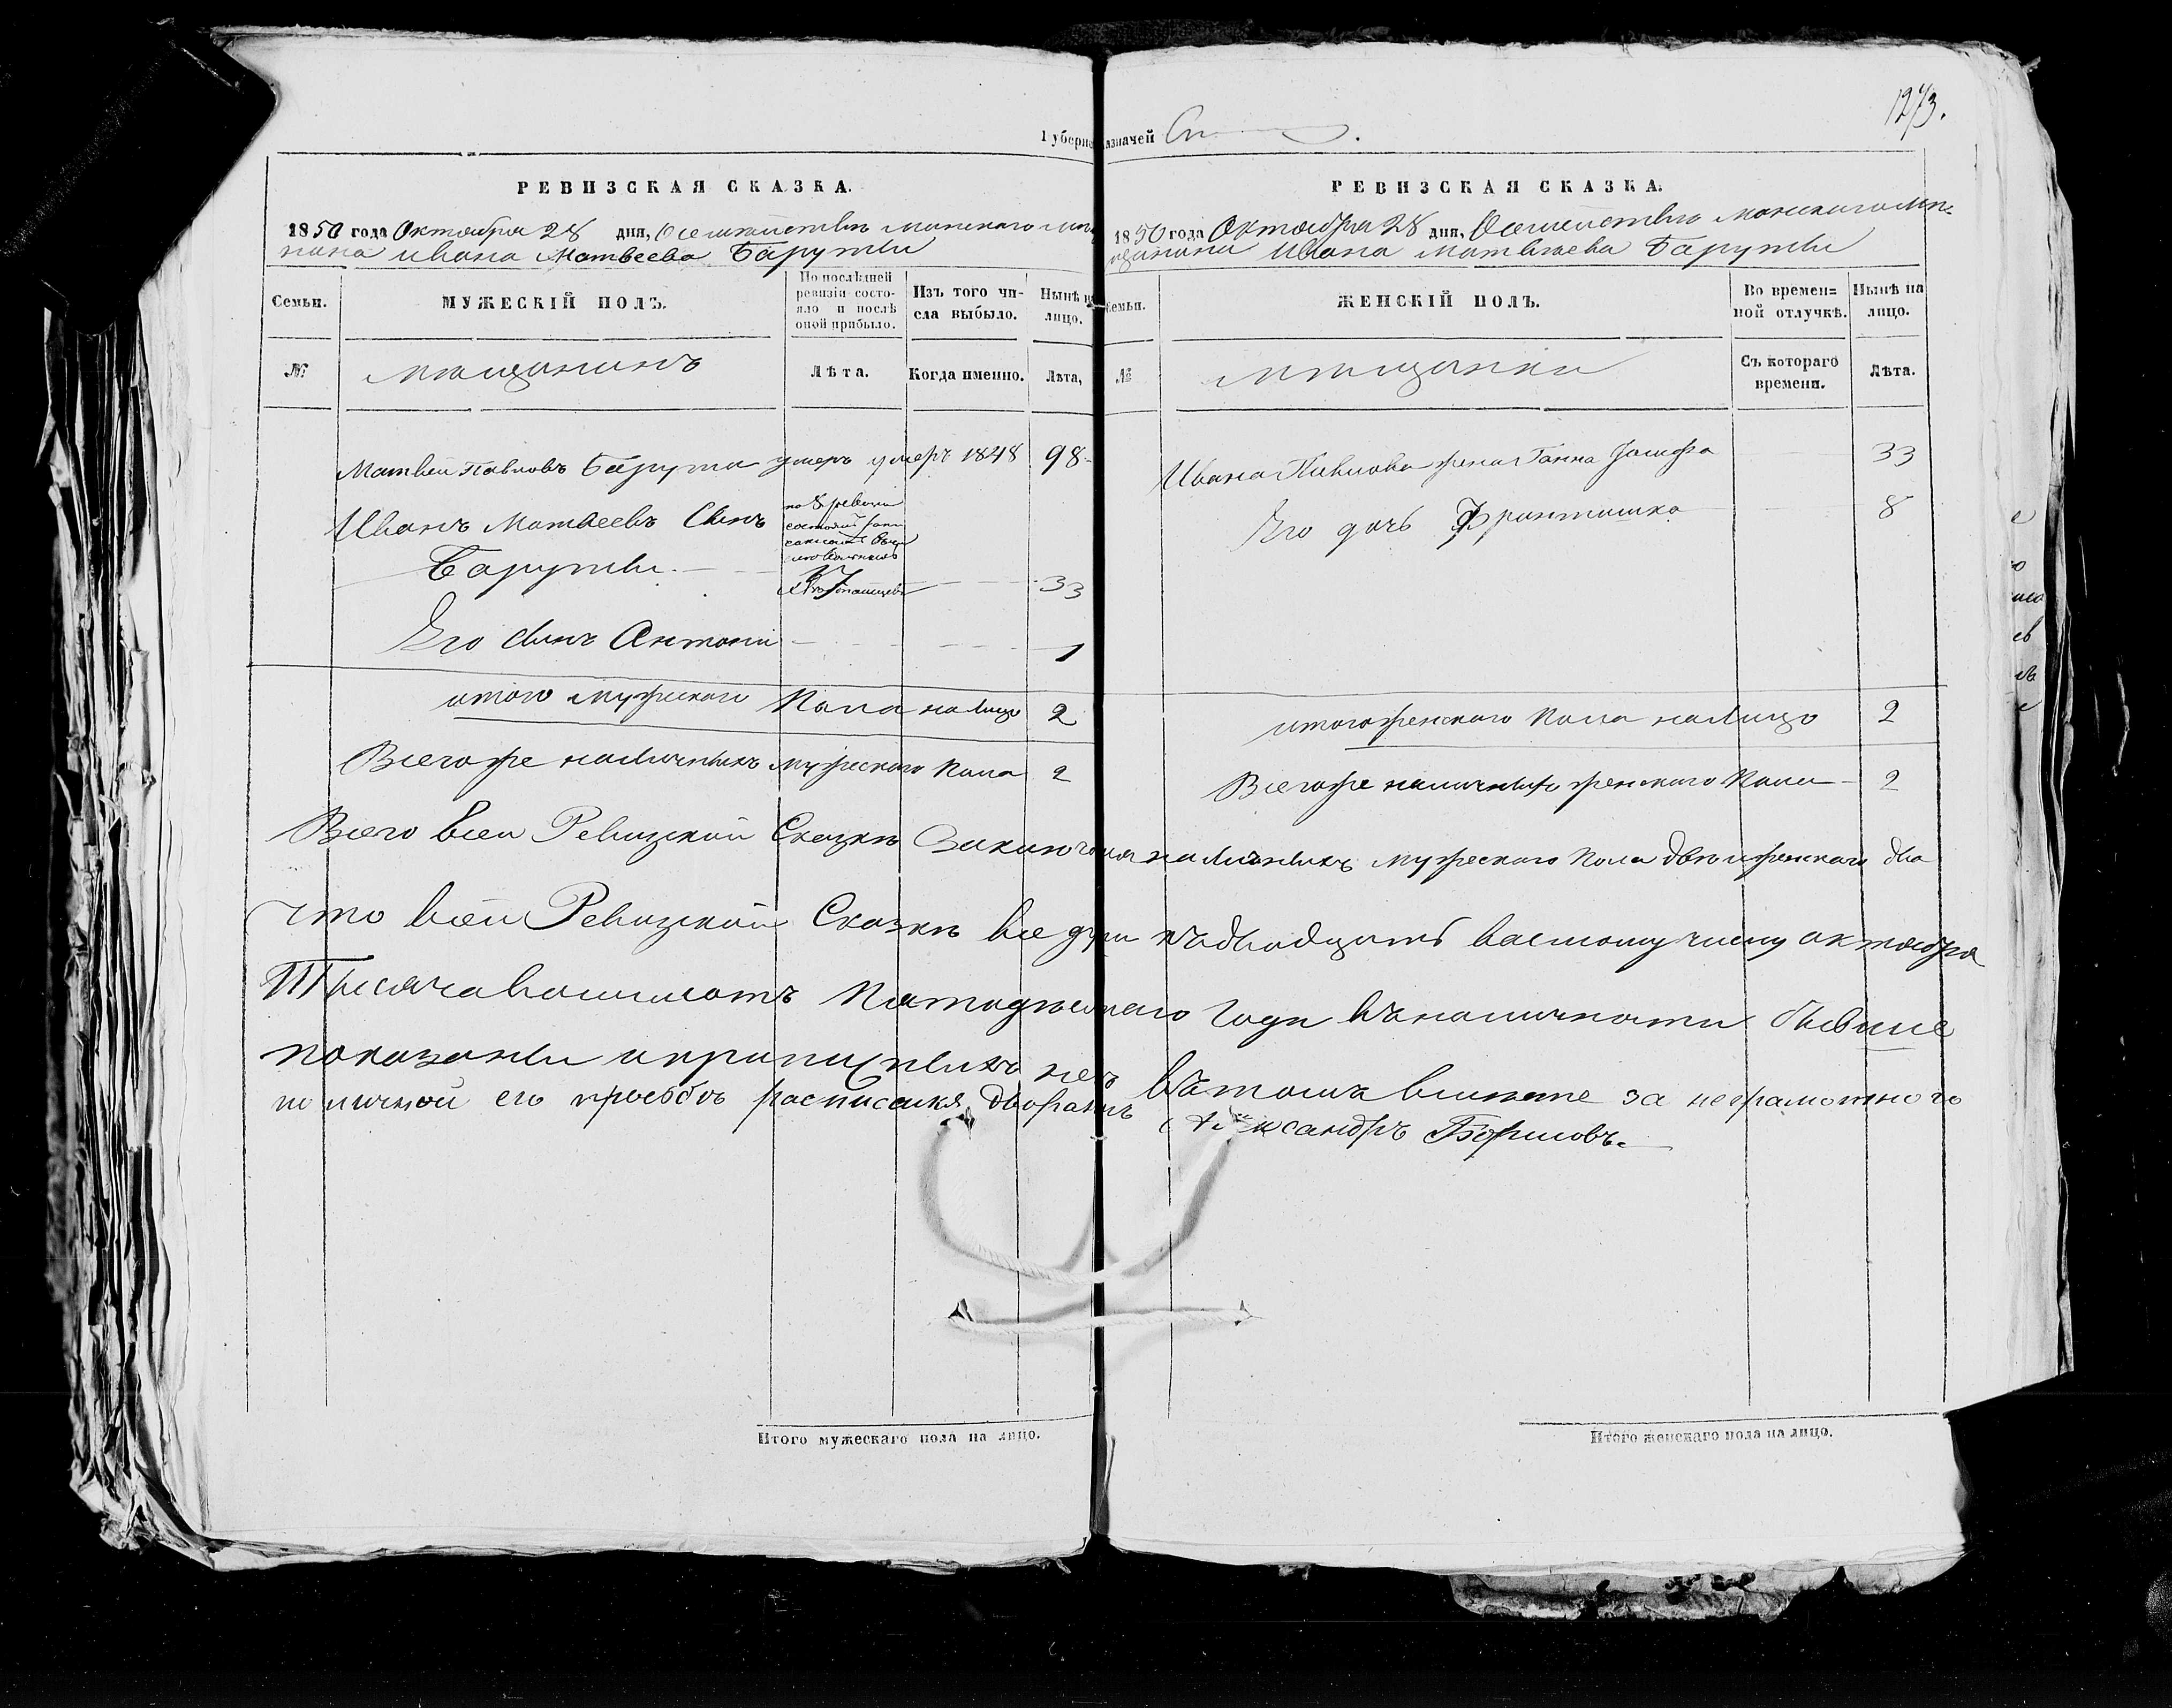 1273.
Губерн казначей
РЕВИЗСКАЯ СКАЗКА.
1850 года Октября 28 дня, О семействѣ минского мѣщ
нина Ивана Матвеева Баруты
Семьи. МУЖЕСКІЙ ПОЛЪ. По послѣдней ревизіи состояло и послѣ оной прибыло. Изъ того числа выбыло. Нынѣ на лицо.
№ мещанинъ Лѣта. Когда именно. Лѣта,
Матвей Павловъ Барута умеръ умеръ 1848 98
Иванъ Матвеевъ Сынъ
по 8 ревизіи
Баруты. 33
Его сынъ Антони 1
итого мужеского Пола на лицо 2
Всегоже наличныхъ мужеского Пола 2
РЕВИЗСКАЯ СКАЗКА.
1850 года Октября 28 дня, О семействѣ минского мѣ-
щанина Ивана Матвѣева Баруты
Семьи. ЖЕНСКІЙ ПОЛЪ. Во времен= ной отлучкѣ. Нынѣ на лицо.
№ мещанки Съ котораго времени. Лѣта.
Ивана Павлова жена Ганна 33
Его дочь Франтишка 8
итого женского Пола на лицо 2
Всегоже наличныхъ женского Пола 2
Всего всей Ревизской Сказкѣ Заключается наличныхъ мужеского Пола двѣ и женского два
Что всей Ревизской Сказкѣ все души къ двадцать восмому числу октября
Тысяча восимсотъ Пятодесятого Года въ наличности бывше
показаны и прописныхъ нетъ Въ томъ
по личной его прозбѣ расписался Дворанинъ за неграмотного
Александръ Борисовъ.
Итого мужескаго пола на лицо.
Итого женскаго пола на лицо.